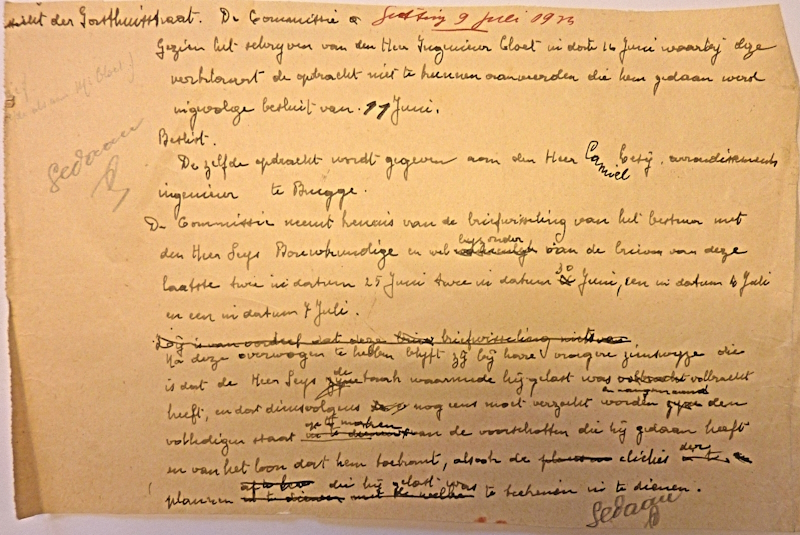 der Gasthuisstraat. De Commissie Zitting 9 Juli 1923
Gezien het schrijven van den Heer Ingenieur Cloet in date 16 Juni waarbij deze
verklaart de opdracht niet te kunnen aanvaerden die hem gedaan werd
ingevolge besluit van 11 Juni.
Beslist.
De zelfde opdracht wordt gegeven aan den Heer Camiel arrondissements
ingenieur te Brugge.
Gedaan
De Commissie neemt kennis van de briefwisseling van het bestuur met
den Heer Seys Bouwkundige en wel bijzonder van de brieven van deze
laatste twee in datum 25 Juni twee in datum 30 Juni, een in datum 6 Juli
en een in datum 7 Juli.
Zij is van oordeel dat deze briefwisseling niets
Na deze overwogen te hebben blijft zij bij hare vroegere zienswijze die
is dat de Heer Seys de taak waarmede hij gelast was volbracht
heeft, en dat dienvolgens nog eens moet verzocht worden den
volledigen staat op te maken van de voorschotten die hij gedaan heeft
en van het loon dat hem toekomt, alsook de clichés der
plannen die hij gelast was te teekenen in te dienen.
Gedaan